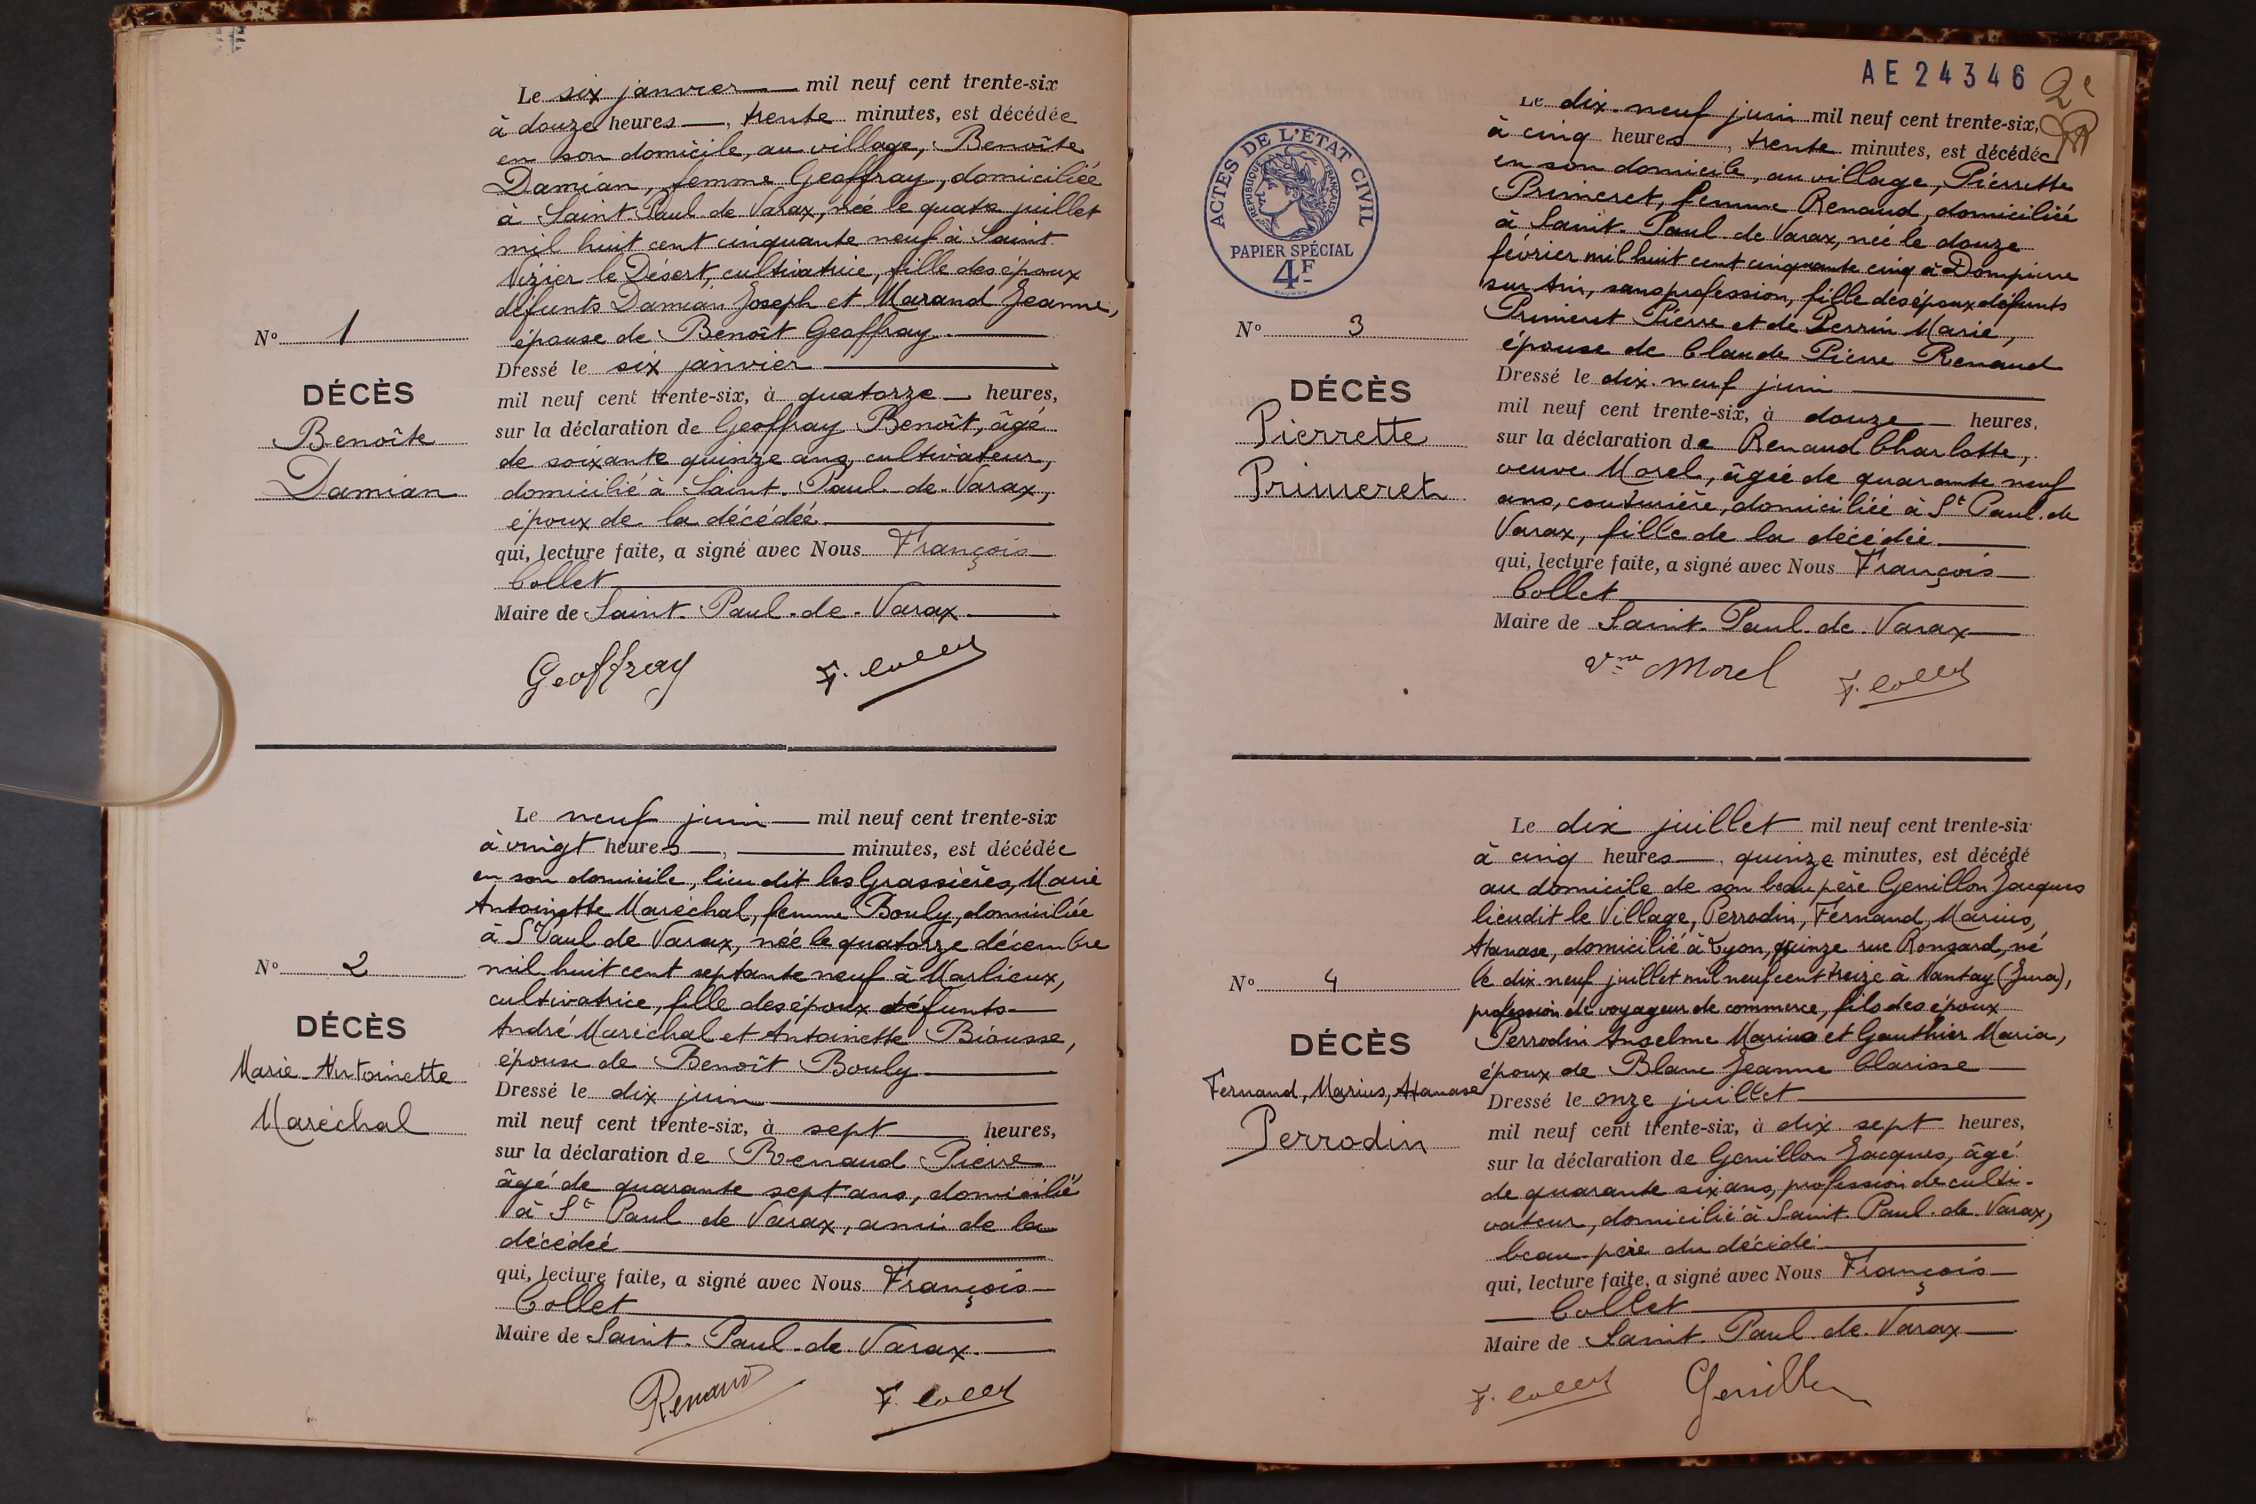 Le six janvier mil neuf cent trente-six
à douze heures, trente minutes, est décédée
en son domicile, au village, Benoîte
Damian, femme Geoffray, domiciliée
à Saint-Paul de Varax, née le quatre juillet
mil huit cent cinquante neuf à Saint
Nizier le Désert, cultivatrice, fille des époux
défunts Damian Joseph et Marand Jeanne,
épouse de Benoît Geoffray
Dressé le six janvier
mil neuf cent trente-six, à quatorze heures,
sur la déclaration de Geoffray Benoît, âgé
de soixante quinze ans, cultivateur,
domicilié à Saint-Paul-de-Varax,
époux de la décédée
qui, lecture faite, a signé avec Nous François
Collet
Maire de Saint-Paul-de-Varax
Geoffray F. Collet
No 1
DÉCÈS
Benoîte
Damian
Le neuf juin mil neuf cent trente-six
à vingt heures, minutes, est décédée
en son domicile, lieu dit les Grassières, Marie
Antoinette Maréchal, femme Bouly, domiciliée
à St Paul de Varax, née le quatorze décembre
mil huit cent septante neuf à Marlieux,
cultivatrice, fille des époux défunts
André Maréchal et Antoinette Biousse,
épouse de Benoît Bouly
Dressé le dix juin
mil neuf cent trente-six, à sept heures,
sur la déclaration de Renaud Pierre
âgé de quarante sept ans, domicilié
à St Paul de Varax, ami de la
décédée
qui, lecture faite, a signé avec Nous François
Collet
Maire de Saint-Paul-de-Varax
Renaud F. Collet
No 2
DÉCÈS
Marie-Antoinette
Maréchal
AE 24346
2e
ACTES DE L'ÉTAT CIVIL
RÉPUBLIQUE FRANÇAISE
PAPIER SPÉCIAL
4F
Le dix-neuf juin mil neuf cent trente-six,
à cinq heures, trente minutes, est décédée
en son domicile, au village, Pierrette
Primeret, femme Renaud, domiciliée
à Saint-Paul de Varax, née le douze
février mil huit cent cinquante cinq à Dompierre
sur Ain, sans profession, fille des époux défunts
Primeret Pierre et de Perrin Marie,
épouse de Claude Pierre Renaud
Dressé le dix-neuf juin
mil neuf cent trente-six, à douze heures,
sur la déclaration de Renaud Charlotte,
veuve Morel, âgée de quarante neuf
ans, couturière, domiciliée à St Paul-de
Varax, fille de la décédée
qui, lecture faite, a signé avec Nous François
Collet
Maire de Saint-Paul-de-Varax
Vve Morel F. Collet
No 3
DÉCÈS
Pierrette
Primeret
Le dix juillet mil neuf cent trente-six
à cinq heures, quinze minutes, est décédé
au domicile de son beau père Genillon Jacques
lieudit le Village, Perrodin, Fernand, Marius,
Atanase, domicilié à Lyon, quinze rue Ronsard, né
le dix-neuf juillet mil neuf cent treize à Nantay (Jura),
profession de voyageur de commerce, fils des époux
Perrodin Anselme Marius et Gauthier Maria,
époux de Blanc Jeanne Clarisse
Dressé le onze juillet
mil neuf cent trente-six, à dix sept heures,
sur la déclaration de Genillon Jacques, âgé
de quarante six ans, profession de culti-
vateur, domicilié à Saint-Paul-de-Varax,
beau-père du décédé
qui, lecture faite, a signé avec Nous François
Collet
Maire de Saint-Paul-de-Varax
F. Collet Genillon
No 4
DÉCÈS
Fernand, Marius, Atanase
Perrodin